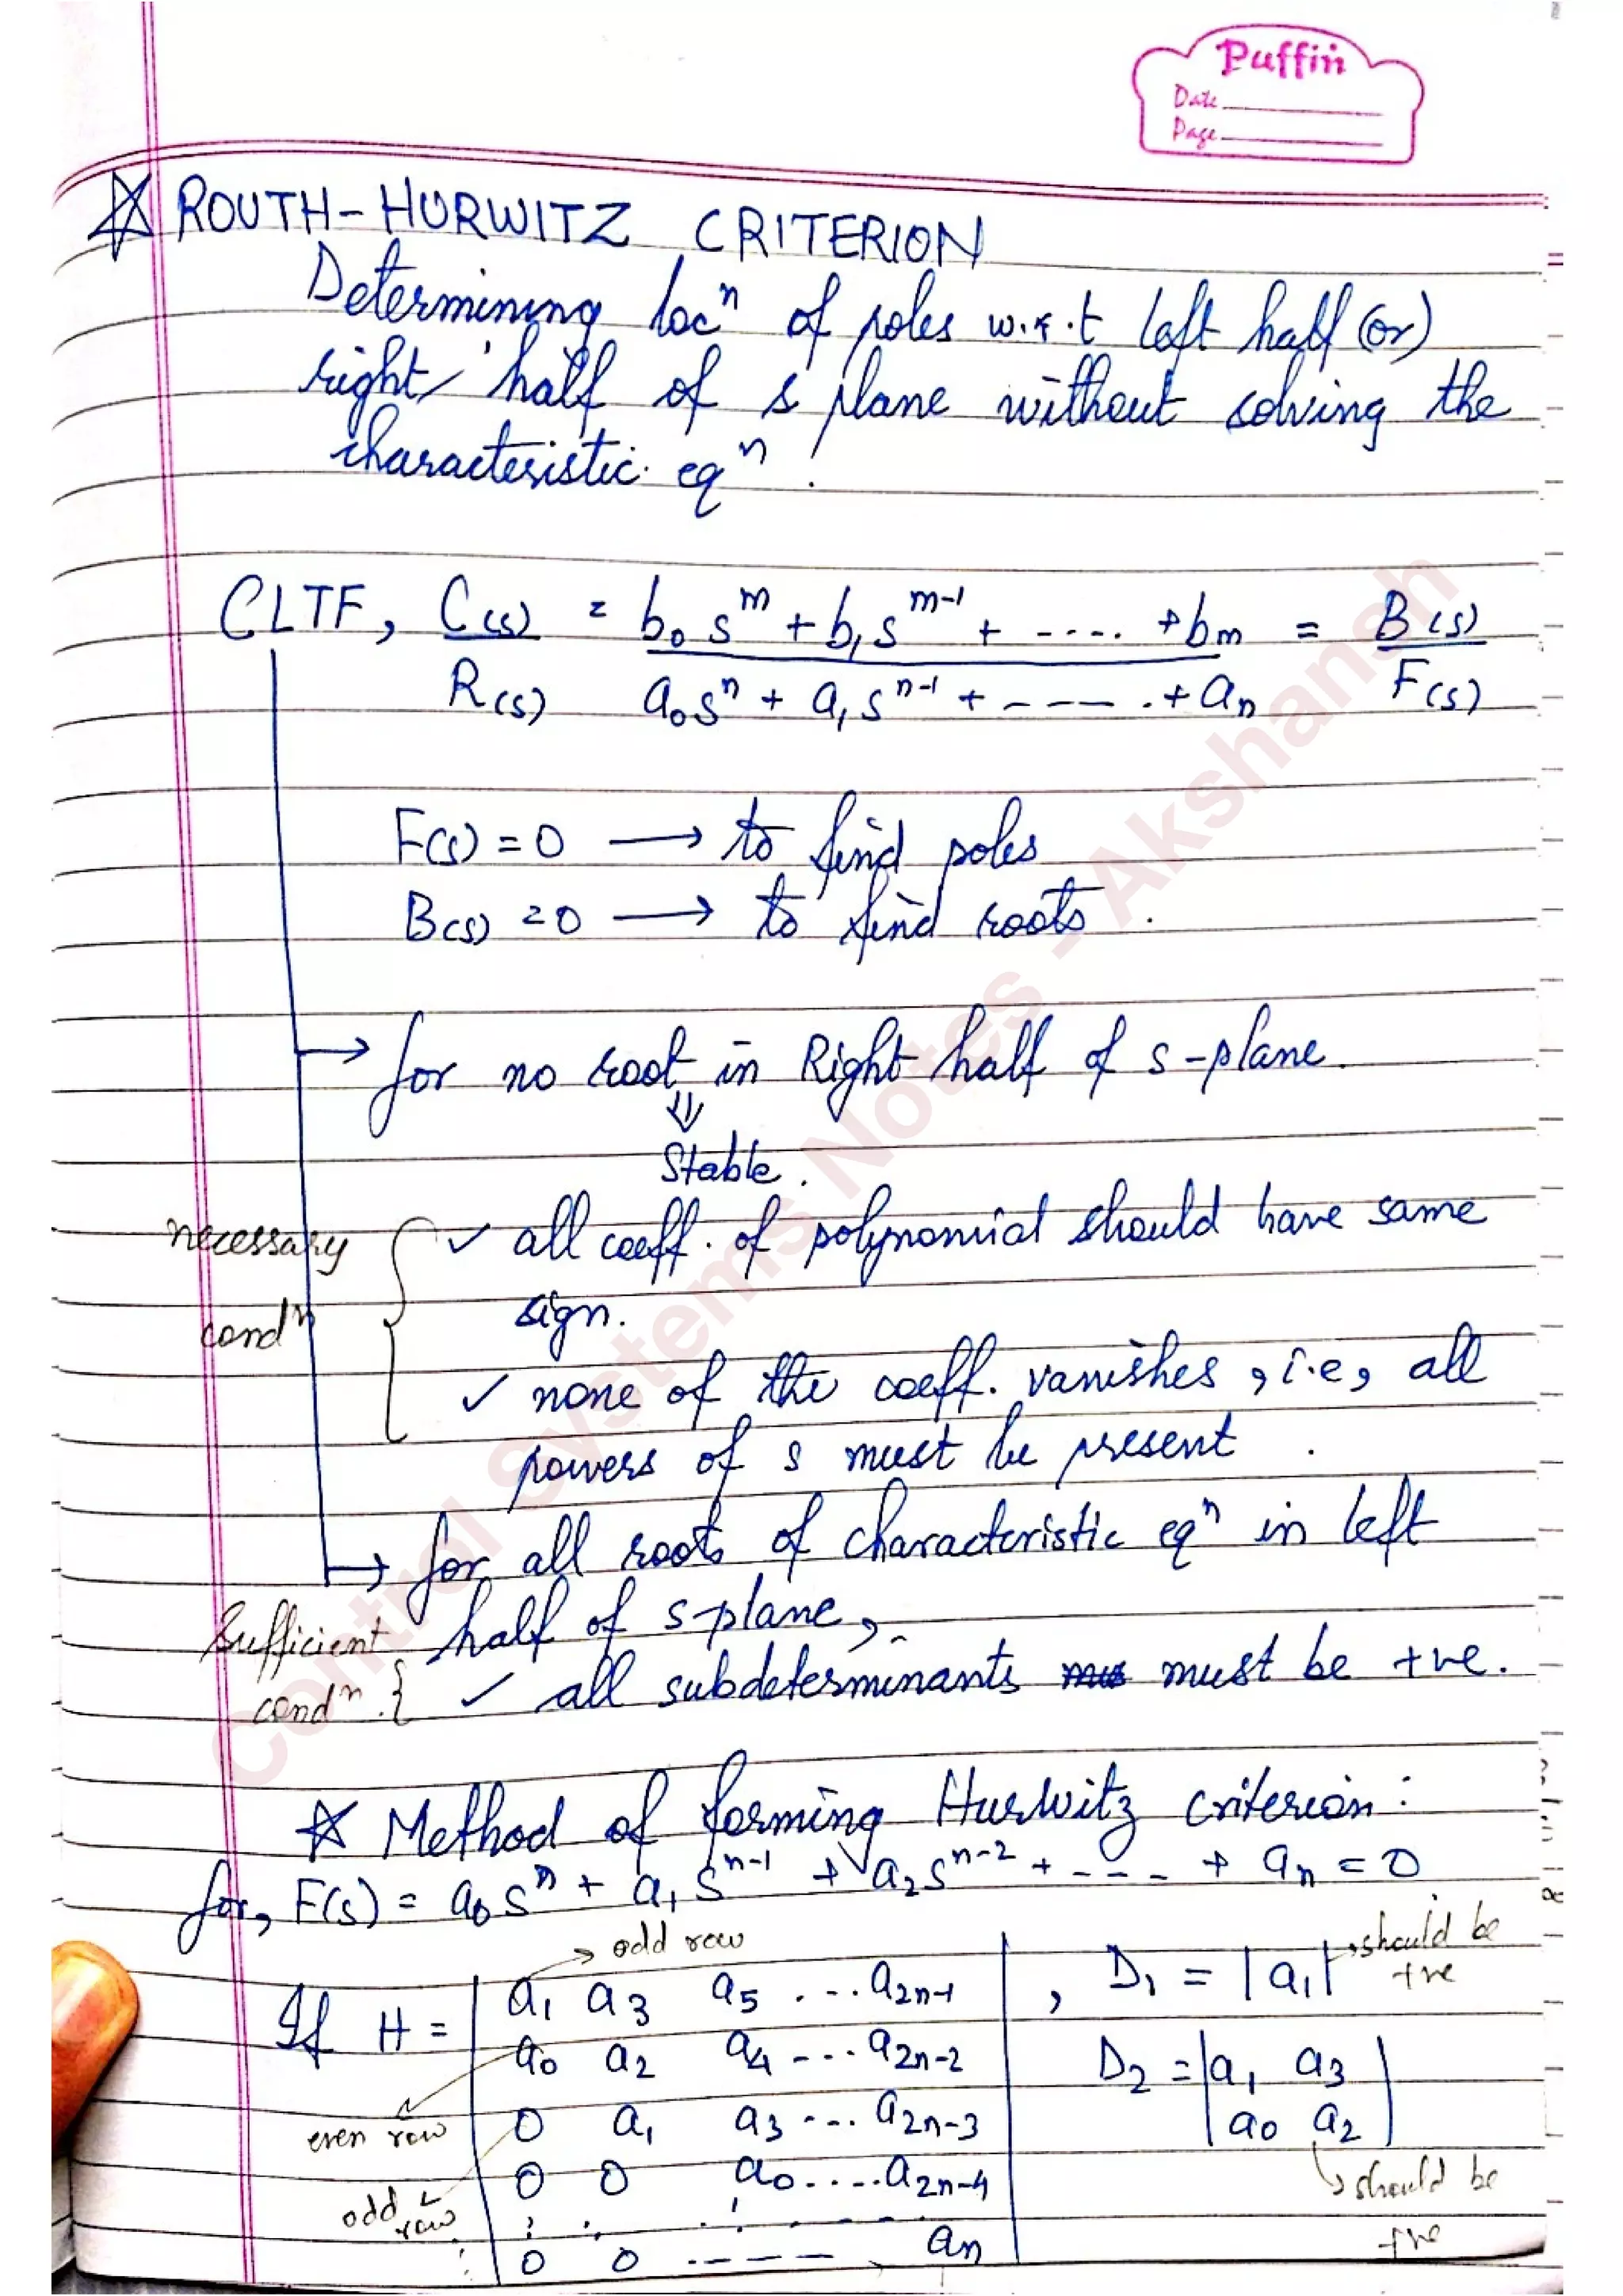 Puffin
Date
Page
☆ ROUTH-HURWITZ CRITERION
Determining locⁿ of poles w.r.t left half (or)
right half of s plane without solving the
characteristic eqⁿ.
CLTF, C(s) = b₀s^m + b₁s^(m-1) + ..... + bₘ = B(s)
R(s) a₀sⁿ + a₁s^(n-1) + ---- . + aₙ F(s)
F(s) = 0 → to find poles
B(s) = 0 → to find roots.
→ for no root in Right half of s-plane.
⇓
Stable.
necessary condⁿ { ✓ all coeff. of polynomial should have same
sign.
✓ none of the coeff. vanishes, i.e, all
powers of s must be present.
→ for all roots of characteristic eqⁿ in left
half of s-plane,
Sufficient condⁿ. { ✓ all subdeterminants must be +ve.
☆ Method of forming Hurwitz criterion:
for, F(s) = a₀sⁿ + a₁s^(n-1) + a₂s^(n-2) + --- + aₙ = 0
→ odd row
If H = | a₁ a₃ a₅ ... a₂ₙ₋₁ | , D₁ = |a₁| → should be +ve
a₀ a₂ a₄ --- a₂ₙ₋₂
D₂ = | a₁ a₃ |
even row
0 a₁ a₃ --- a₂ₙ₋₃
a₀ a₂
0 0 a₀ .... a₂ₙ₋₄
→ should be +ve
odd row
0 0 ----- aₙ
Control Systems Notes - Akshansh